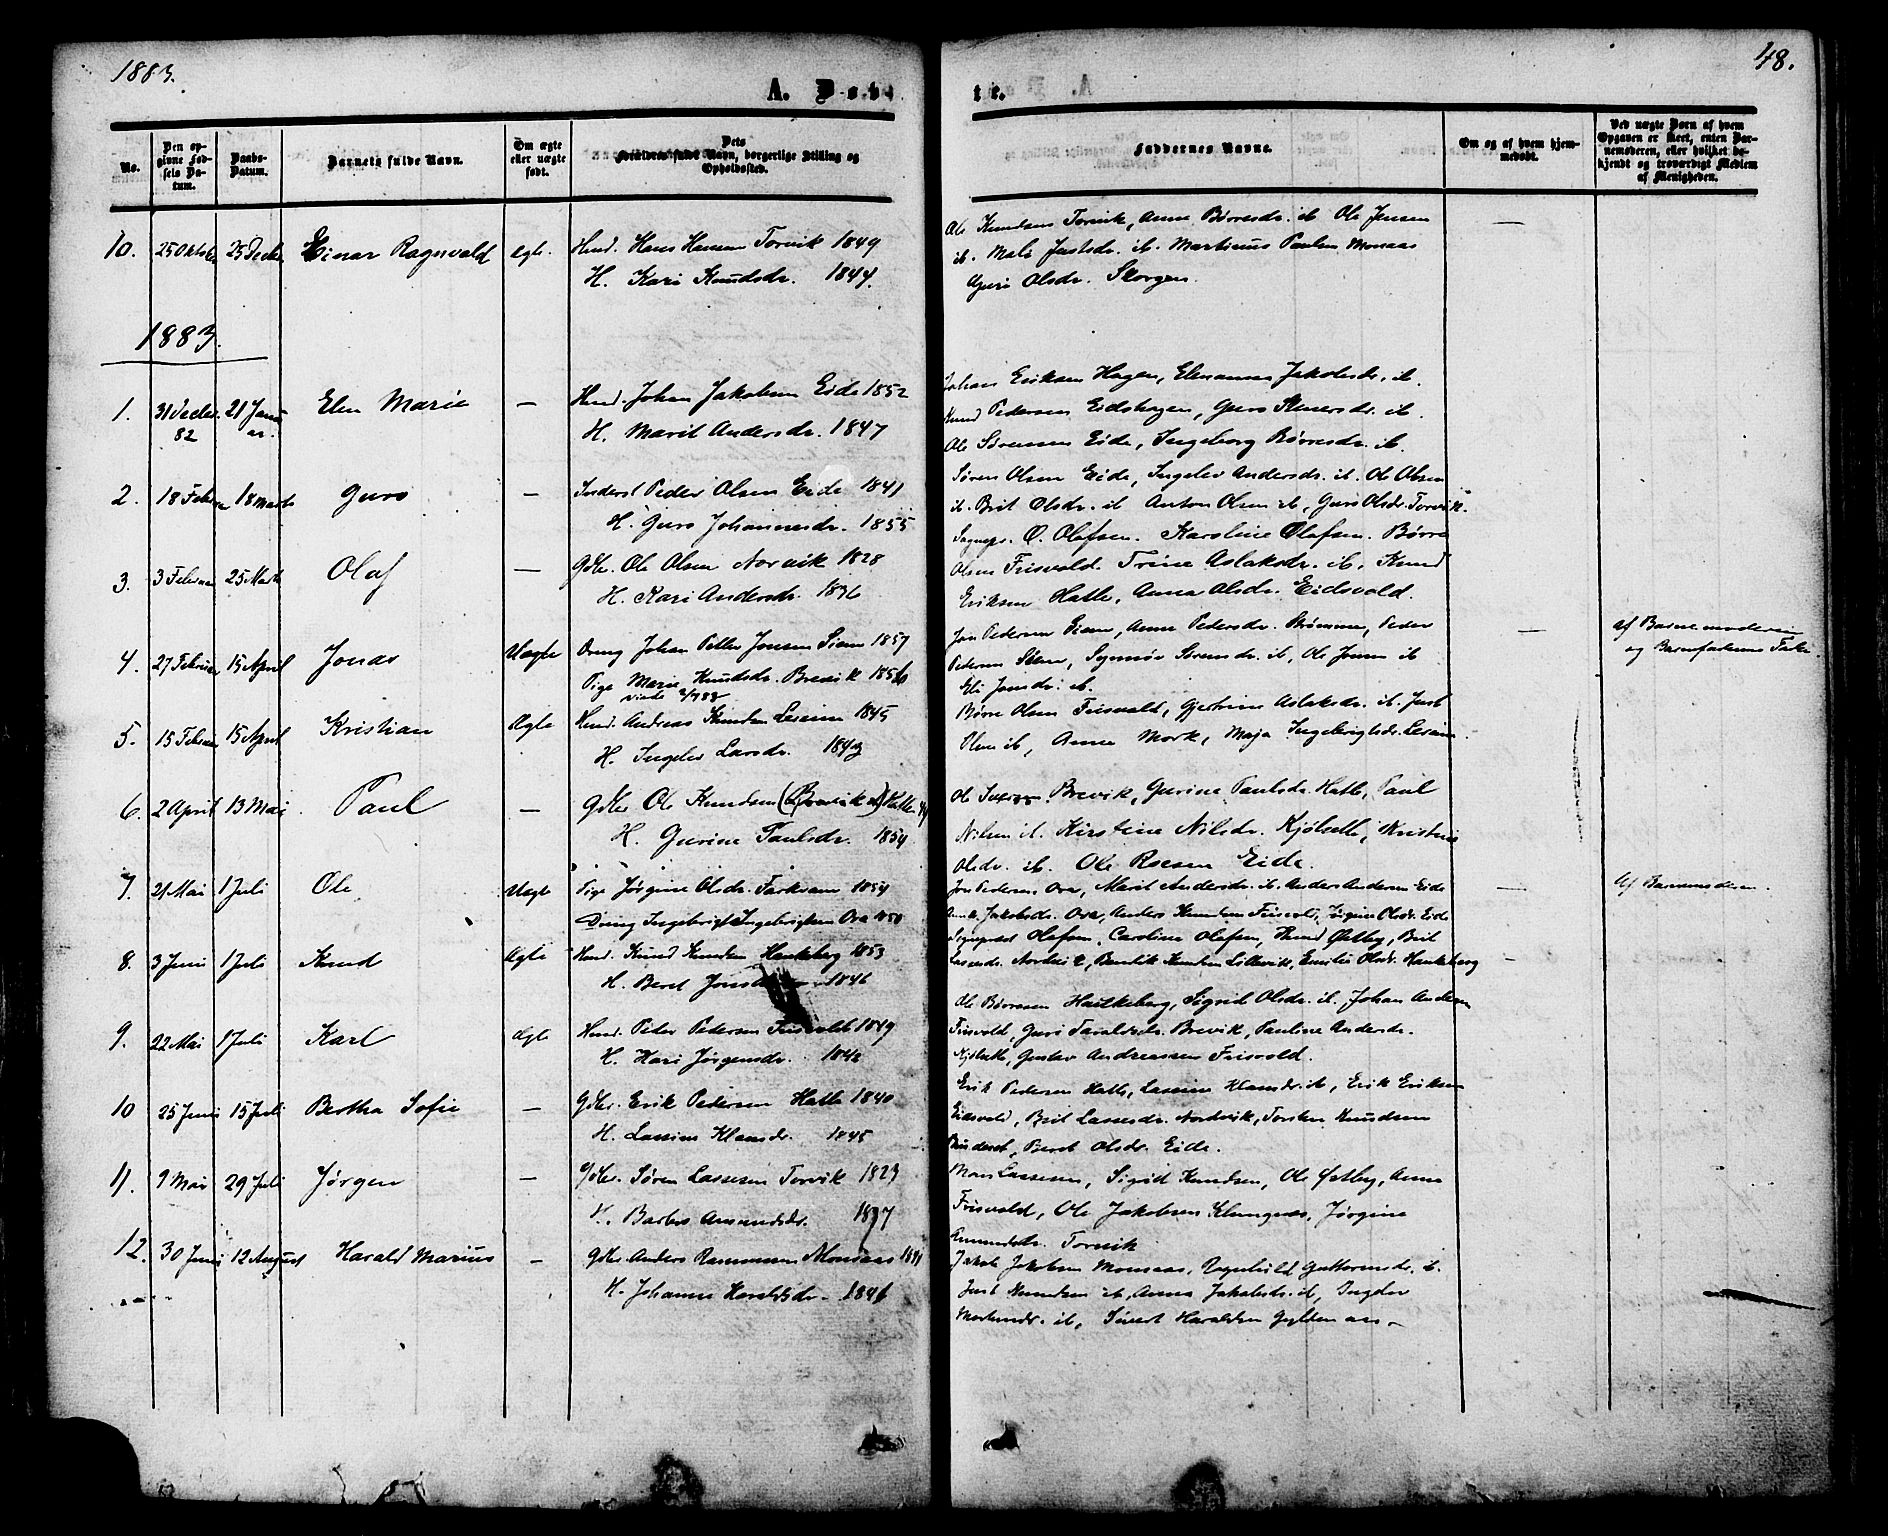 1883.
48.
A. Døb
te.
No.
Den opgivne Fødsels Datum.
Daabs-Datum.
Barnets fulde Navn.
Om ægte eller uægte født.
Dets Forældres fulde Navn, borgerlige Stilling og Opholdssted.
Faddernes Navne.
Om og af hvem hjemmedøbt.
Ved uægte Børn af hvem Opgaven er skeet, enten Barnemoderen, eller hvilket bekjendt og troværdigt Medlem af Menigheden.
10. 25 Oktober 25 Decbr Einar Ragnvald Ægte. Husm. Hans Hansen Torvik 1849
H. Kari Knudsdr. 1844.
Ole Knudsen Torvik, Anne Børresdr. ib. Ole Jensen
ib. Mali Justsdr. ib. Martinus Paulsen Monsaas
Guri Olsdr. Skorgen. —
1883.
1. 31 Decbr. 82 21 Januar. Elen Marie — Husm. Johan Jakobsen Eide 1852
H. Marit Andersdr. 1847
Johan Eriksen Hagen, Elenanna Jakobsdr. ib.
Knud Pedersen Eidshagen, Guro Steinersdr. ib.
Ole Sørensen Eide, Ingeborg Børresdr. ib.
2. 18 Februar 18 Marts Guro — Inderst Peder Olsen Eide 1841
H. Guro Johannesdr. 1855
Søren Olsen Eide, Ingelev Andersdr. ib. Ole Olsen
ib. Brit Olsdr. ib Anton Olsen ib, Guro Olsdr. Torvik.
3. 3 Februar 25 Marts Olaf — Gdbr. Ole Olsen Norvik 1828
H. Kari Andersdr. 1836
Sognepr. O. Olafsen. Karoline Olafsen. Børre
Olsen Frisvold. Trine Aslaksdr. ib. Knud
Eriksen Hatle, Anna Olsdr. Eidsvold.
4. 27 Februar 15 April Jonas Uægte Dreng Johan Petter Jonsen Siem 1857
Pige Marie Knudsdr. Brevik 1856
viede 2/7 83
Jon Pedersen Siem, Anne Pedersdr. Strømmen, Peder
Pedersen Siem, Synnøv Sørensdr. ib, Ole Jonsen ib
Eli Jonsdr. ib. — af Barnemoderen
og Barnefaderens Fader
5. 15 Februar 15 April Kristian Ægte Husm. Andreas Knudsen Lereim 1845
H. Ingelev Larsdr. 1843
Børre Olsen Frisvold, Gjertrine Aslaksdr. ib. Just
Olsen ib, Anne Mork, Maja Ingebrigtsdr. Lereim.
6. 2 April 13 Mai Paul — Gdbr Ole Knudsen (Brevik) Hatle
H. Gurine Paulsdr. 1854
Ole Brevik, Gurine Paulsdr. Hatle, Paul
Nilsen ib. Kirstine Nilsdr. Kjölseth, Kristine
Olsdr. ib. Ole Roesen Eide.
7. 21 Mai 1 Juli Ole Uægte Pige Jørgine Olsdr. 1854
Dreng Ingebrigt Ingebrigtsen Ora 1850
Jon Pedersen Ora, Marit Andersdr. ib. Anders Andersen Eide
Anne Jakobsdr. Ora, Anders Knudsen Frisvold, Jørgine Olsdr. Eide — Af Barnemoderen.
8. 3 Juni 1 Juli Knud Ægte Husm. Knud Knudsen Haukeberg 1853
H. Beret Jonsdr. 1846
Sognepræst Olafsen, Caroline Olafsen, Knud Østby, Brit
Lassesdr. Nordvik, Bendik Knudsen Lillevik, Emilie Olsdr. Haukeberg —
9. 22 Mai 1 Juli Karl Ægte Husm. Peder Pedersen Frisvold 1849
H. Kari Jørgensdr. 1842
Ole Børresen Haukeberg, Sigrid Olsdr. ib. Johan Andersen
Frisvold, Guri Taraldsdr. Brevik, Pauline Andersdr.
Kjölseth, Gustav Andreassen Frisvold.
10 25 Juni 15 Juli Bertha Sofie — Gdbr. Erik Pedersen Hatle 1840
H. Lassine Klausdr. 1845
Erik Pedersen Hatle, Lassine Klausdr. ib, Erik Eriksen
Eidsvold, Brit Lassesdr. Nordvik, Torsten Knudsen
Beret Olsdr. Eide.
11. 9 Mai 29 Juli Jørgen — Gdbr. Søren Lassesen Torvik 1823
H. Barbro Amundsdr. 1837
Mons Lassesen, Sigrid Knudsen, Ole Østby, Anne
Frisvold, Ole Jakobsen Klungnes, Jørgine
Torvik
12. 30 Juni 12 August Harald Marius — Gdbr Anders Rasmussen Monsaas
H. Johanne Haraldsdr. 1841
Jakob Jakobsen Monsaas, Ragnhild Guttormsdr. ib.
Just Knudsen ib, Anna Jakobsdr. ib, Ingelev
ib, Sivert Haraldsen